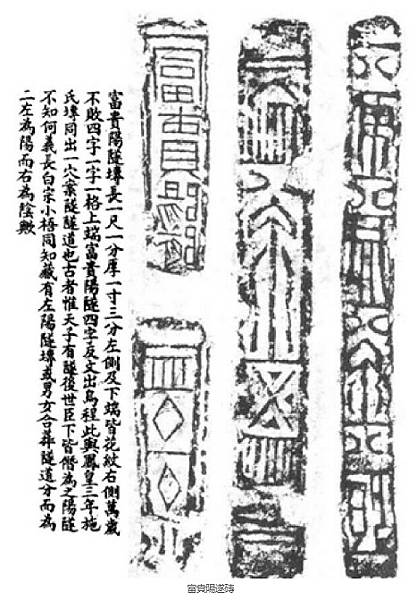 富貴
富貴陽隧塼長一尺一分厚一寸三分左側及下端皆花紋右側萬歲
不敗四字一字一格上端富貴陽隧四字反文出烏程此與鳳皇三年施
氏塼同出一穴案隧隧道也古者惟天子有隧後世臣下皆僭為之陽隧
不知何義長白宗小梧同知藏有左陽隧塼或男女合葬隧道分而為
二左為陽而右為陰歟
富貴陽遂磚